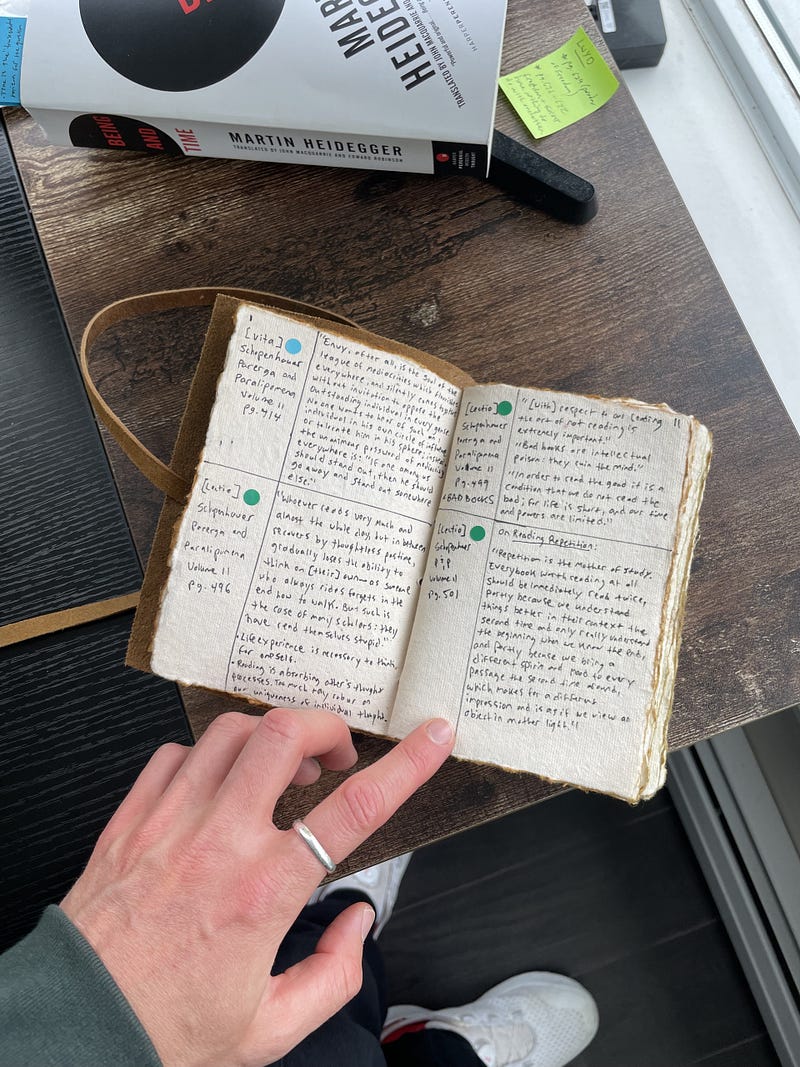 MARTIN HEIDEGGER
TRANSLATED BY JOHN MACQUARRIE AND EDWARD ROBINSON
BEING
AND
TIME
HEIDEG
TRANSLATED BY JOHN MACQUARRIE AND
HARPERPEREN
LUYO
[Vita]
Schopenhauer
Parerga and
Paralipomena
Volume II
Pg. 414
"Envy, after all, is the soul of the
league of mediocrities which flourishes
everywhere, and silently comes together
without invitation to oppose the
outstanding individual in every
No one wants to hear of such an
individual in his own circle of
or tolerate him in his sphere;
the unanimous password of mediocrity
everywhere is: "If one among us
should stand out then he should
go away and stand out somewhere
else."
[Lectio]
Schopenhauer
Parerga and
Paralipomena
Volume II
Pg. 496
"Whoever reads very much and
almost the whole day, but in between
recovers by thoughtless pastime,
gradually loses the ability to
think on [their] own—as someone
who always rides forgets in the
end how to walk. But such is
the case of many scholars: they
have read themselves stupid."
• Life experience is necessary to thinking
for oneself.
• Reading is absorbing other's thought
processes. Too much may rob us on
our uniqueness of individual thought.
[Lectio]
Schopenhauer
Parerga and
Paralipomena
Volume II
Pg. 499
BAD BOOKS
"[With] respect to our reading
the art of not reading is
extremely important."
"Bad books are intellectual
poison: they ruin the mind."
"In order to read the good it is a
condition that we do not read the
bad; for life is short, and our time
and powers are limited."
[Lectio]
Schopenhauer
P & P
Volume II
Pg. 501
On Reading Repetition:
"Repetition is the mother of study.
Every book worth reading at all
should be immediately read twice,
partly because we understand
things better in their context the
second time and only really understand
the beginning when we know the end,
and partly because we bring a
different spirit and mood to every
passage the second time around,
which makes for a different
impression and is as if we view an
object in another light."